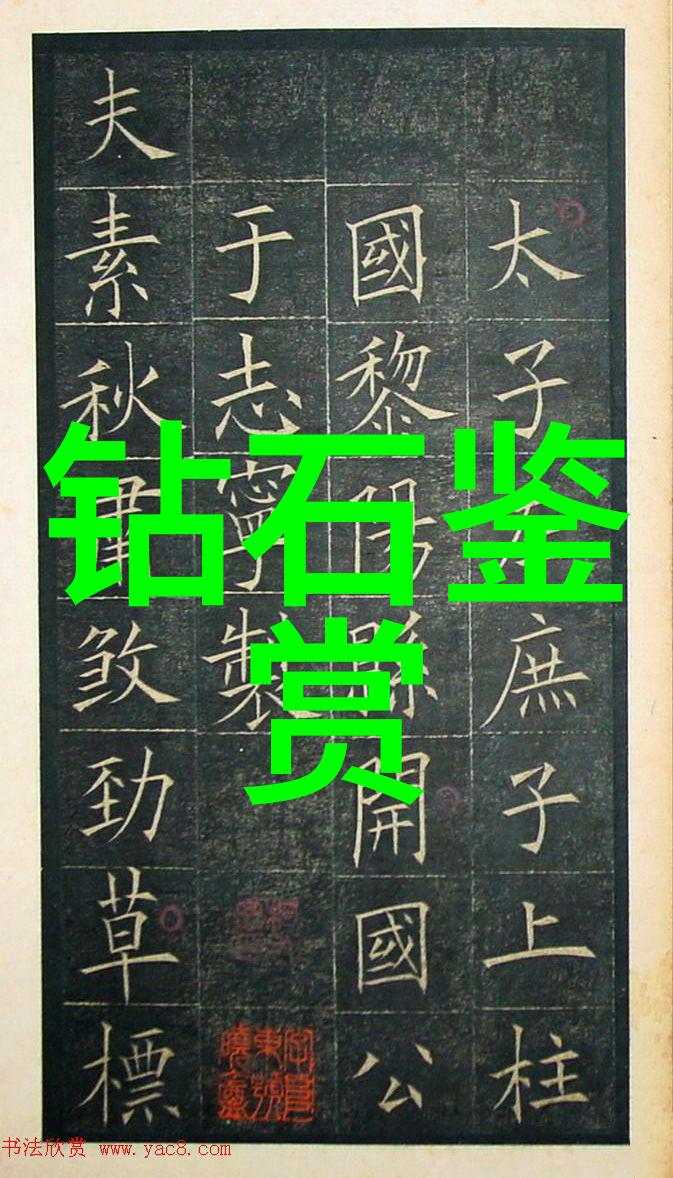 太子庶子上柱
國黎陽縣開國公
于志寧製
夫素秋肅煞勁草標
钻石鉴
赏
书法欣赏 www.yac8.com